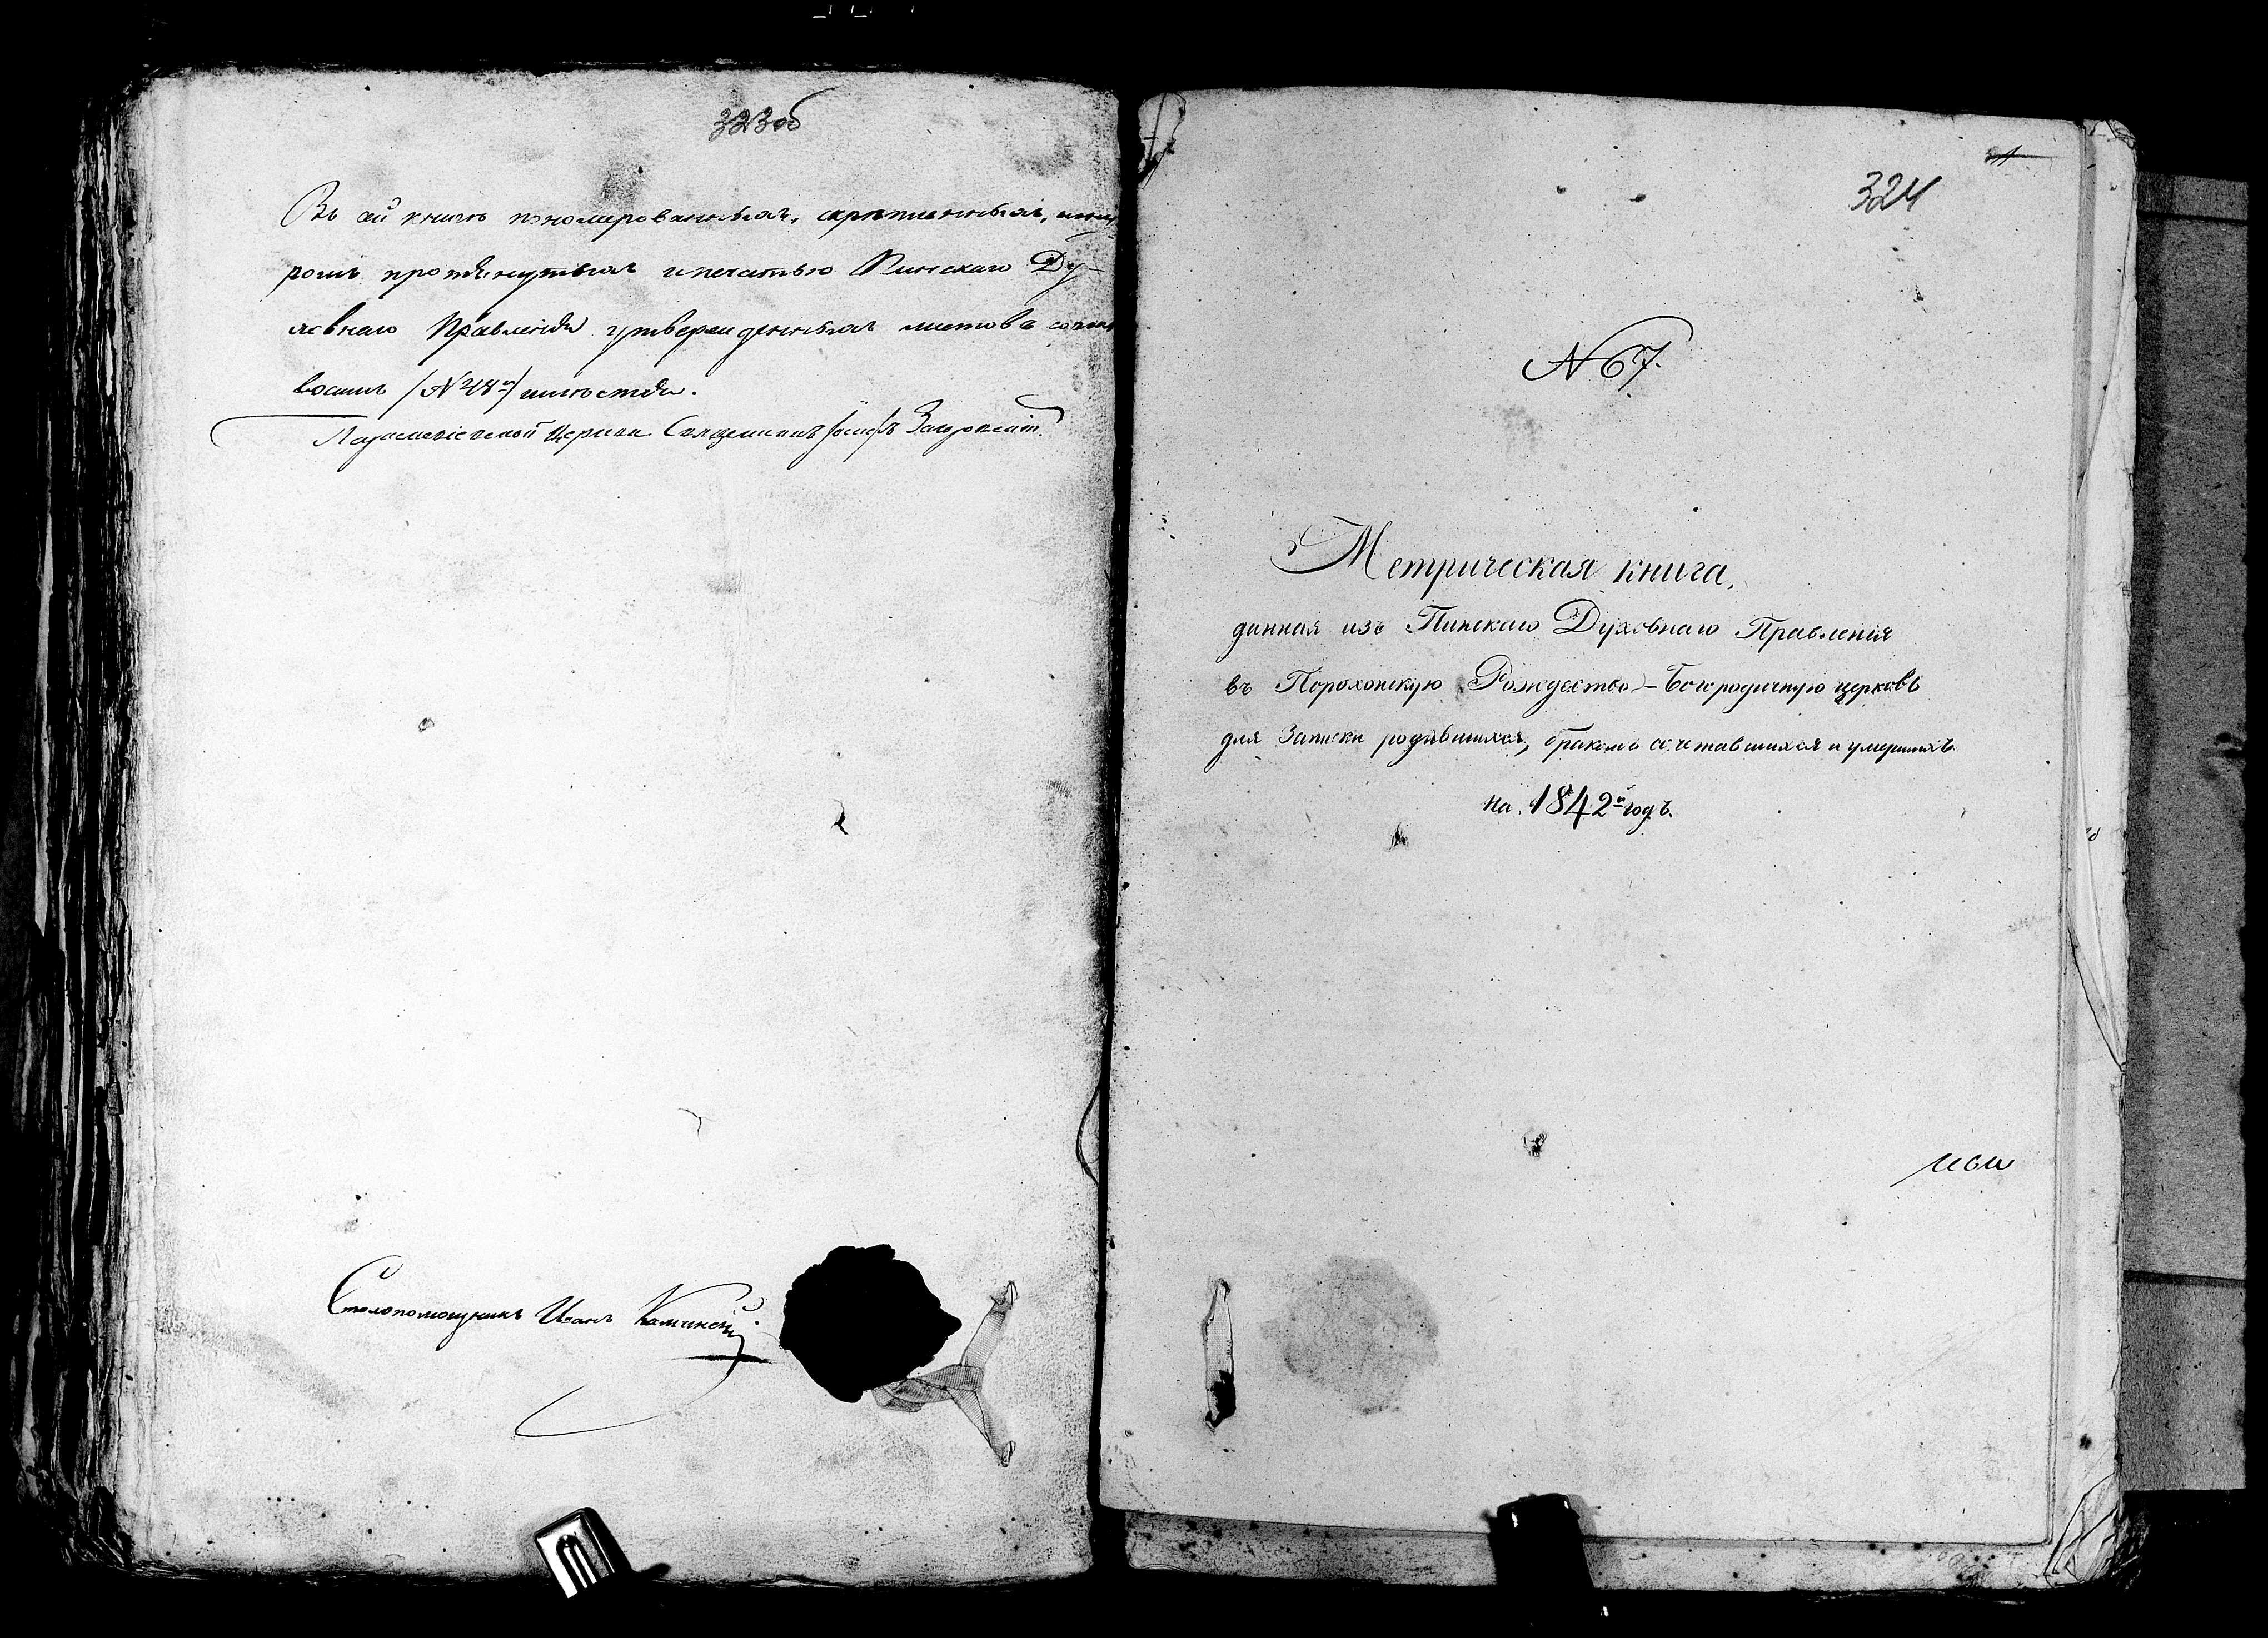 323об
Въ сей книгѣ пономерованныхъ, скрѣпленныхъ, шну
ромъ протянутыхъ и печатью Пинскаго Ду-
ховнаго Правленія утвержденныхъ листовъ сорокъ
восемь (№ 48й) имѣется.
Церкви Священникъ Іосифъ
Столопомощникъ Иванъ Каминскій
324
№ 67.
Метрическая книга,
данная изъ Пинскаго Духовнаго Правленія
въ Порохонскую Рождество-Богородичную церковь
для записки родившихся, бракомъ сочетавшихся и умершихъ
на 1842й годъ.